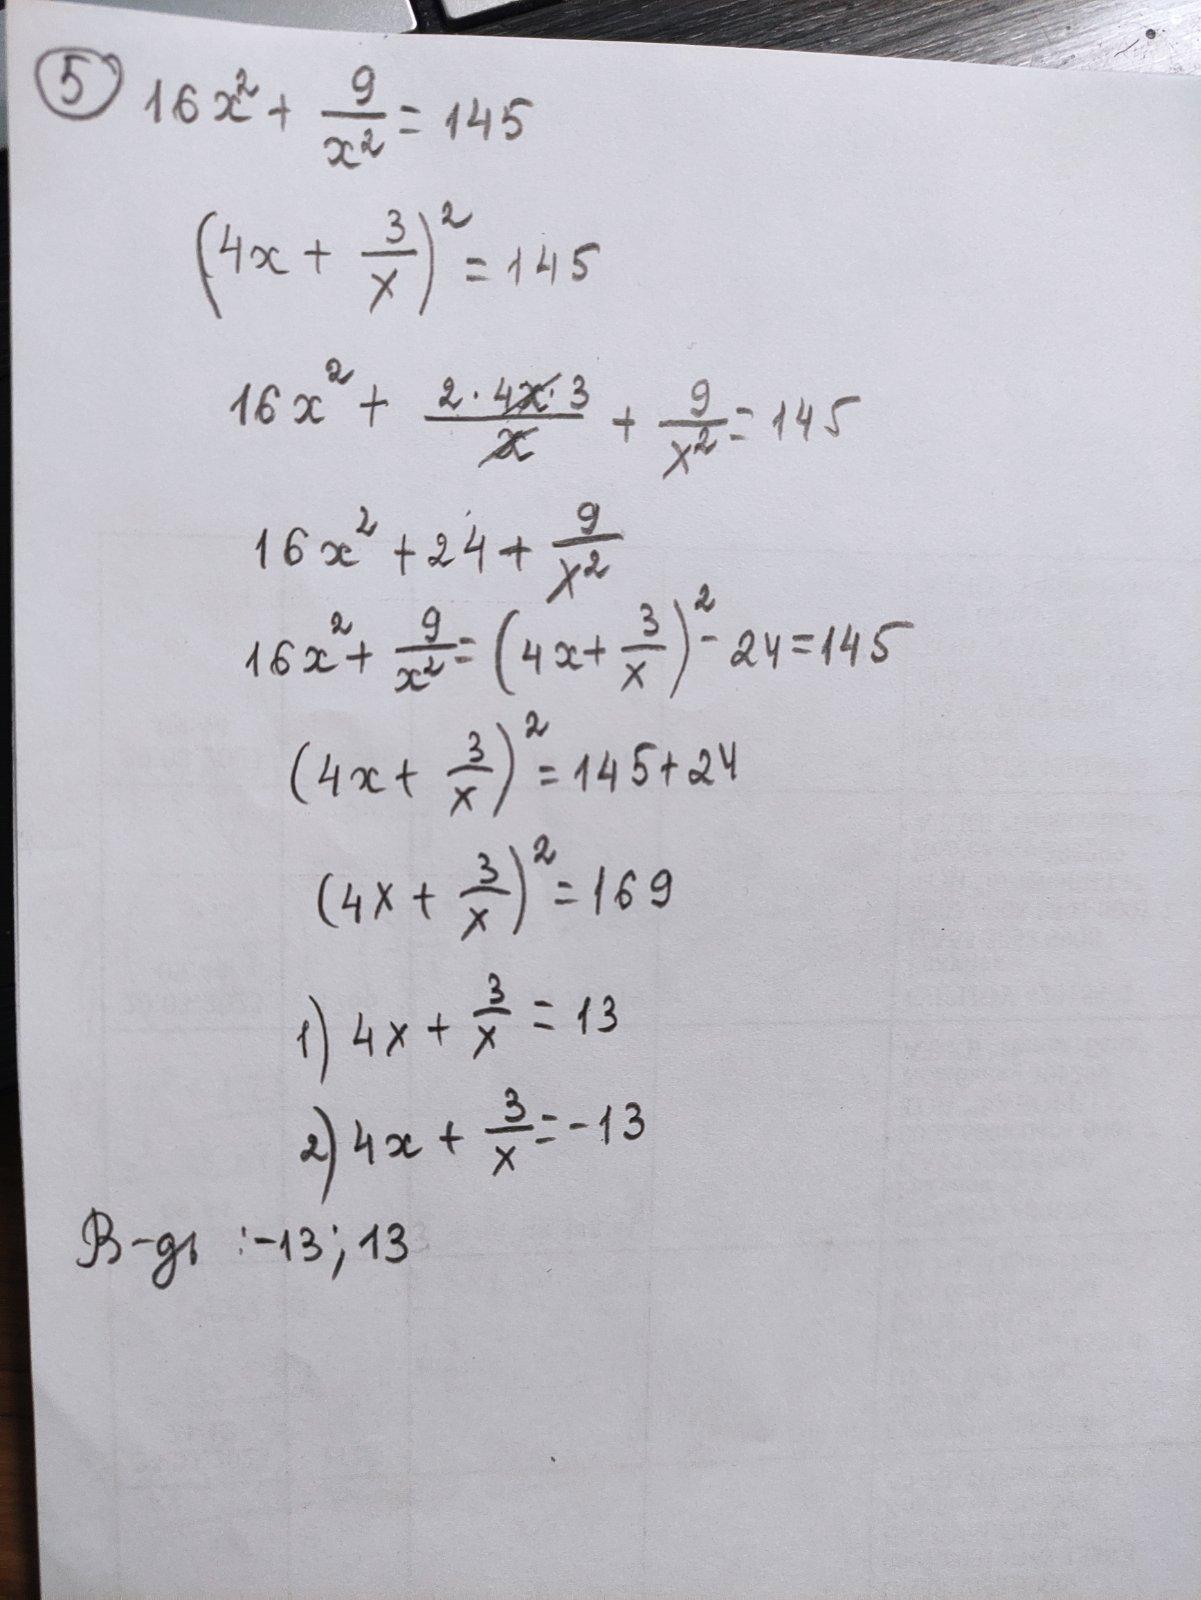 5 16x² + 9/x² = 145
(4x + 3/x)² = 145
16x² + 2·4x·3/x + 9/x² = 145
16x² + 24 + 9/x²
16x² + 9/x² = (4x + 3/x)² - 24 = 145
(4x + 3/x)² = 145 + 24
(4x + 3/x)² = 169
1) 4x + 3/x = 13
2) 4x + 3/x = -13
В-дь : -13; 13